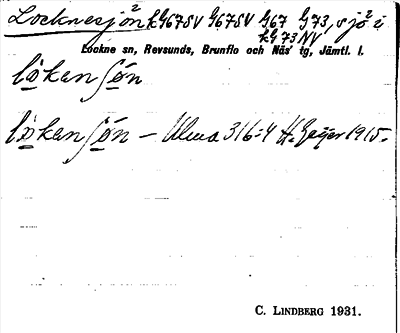 Locknesjön kG67SV G67SV G67 G73, sjö i
kG73NV
Lockne sn, Revsunds, Brunflo och Näs' tg, Jämtl. l.
lökan sön
lökan sön – Ulma 316:4 H. Geijer 1915.
C. LINDBERG 1931.